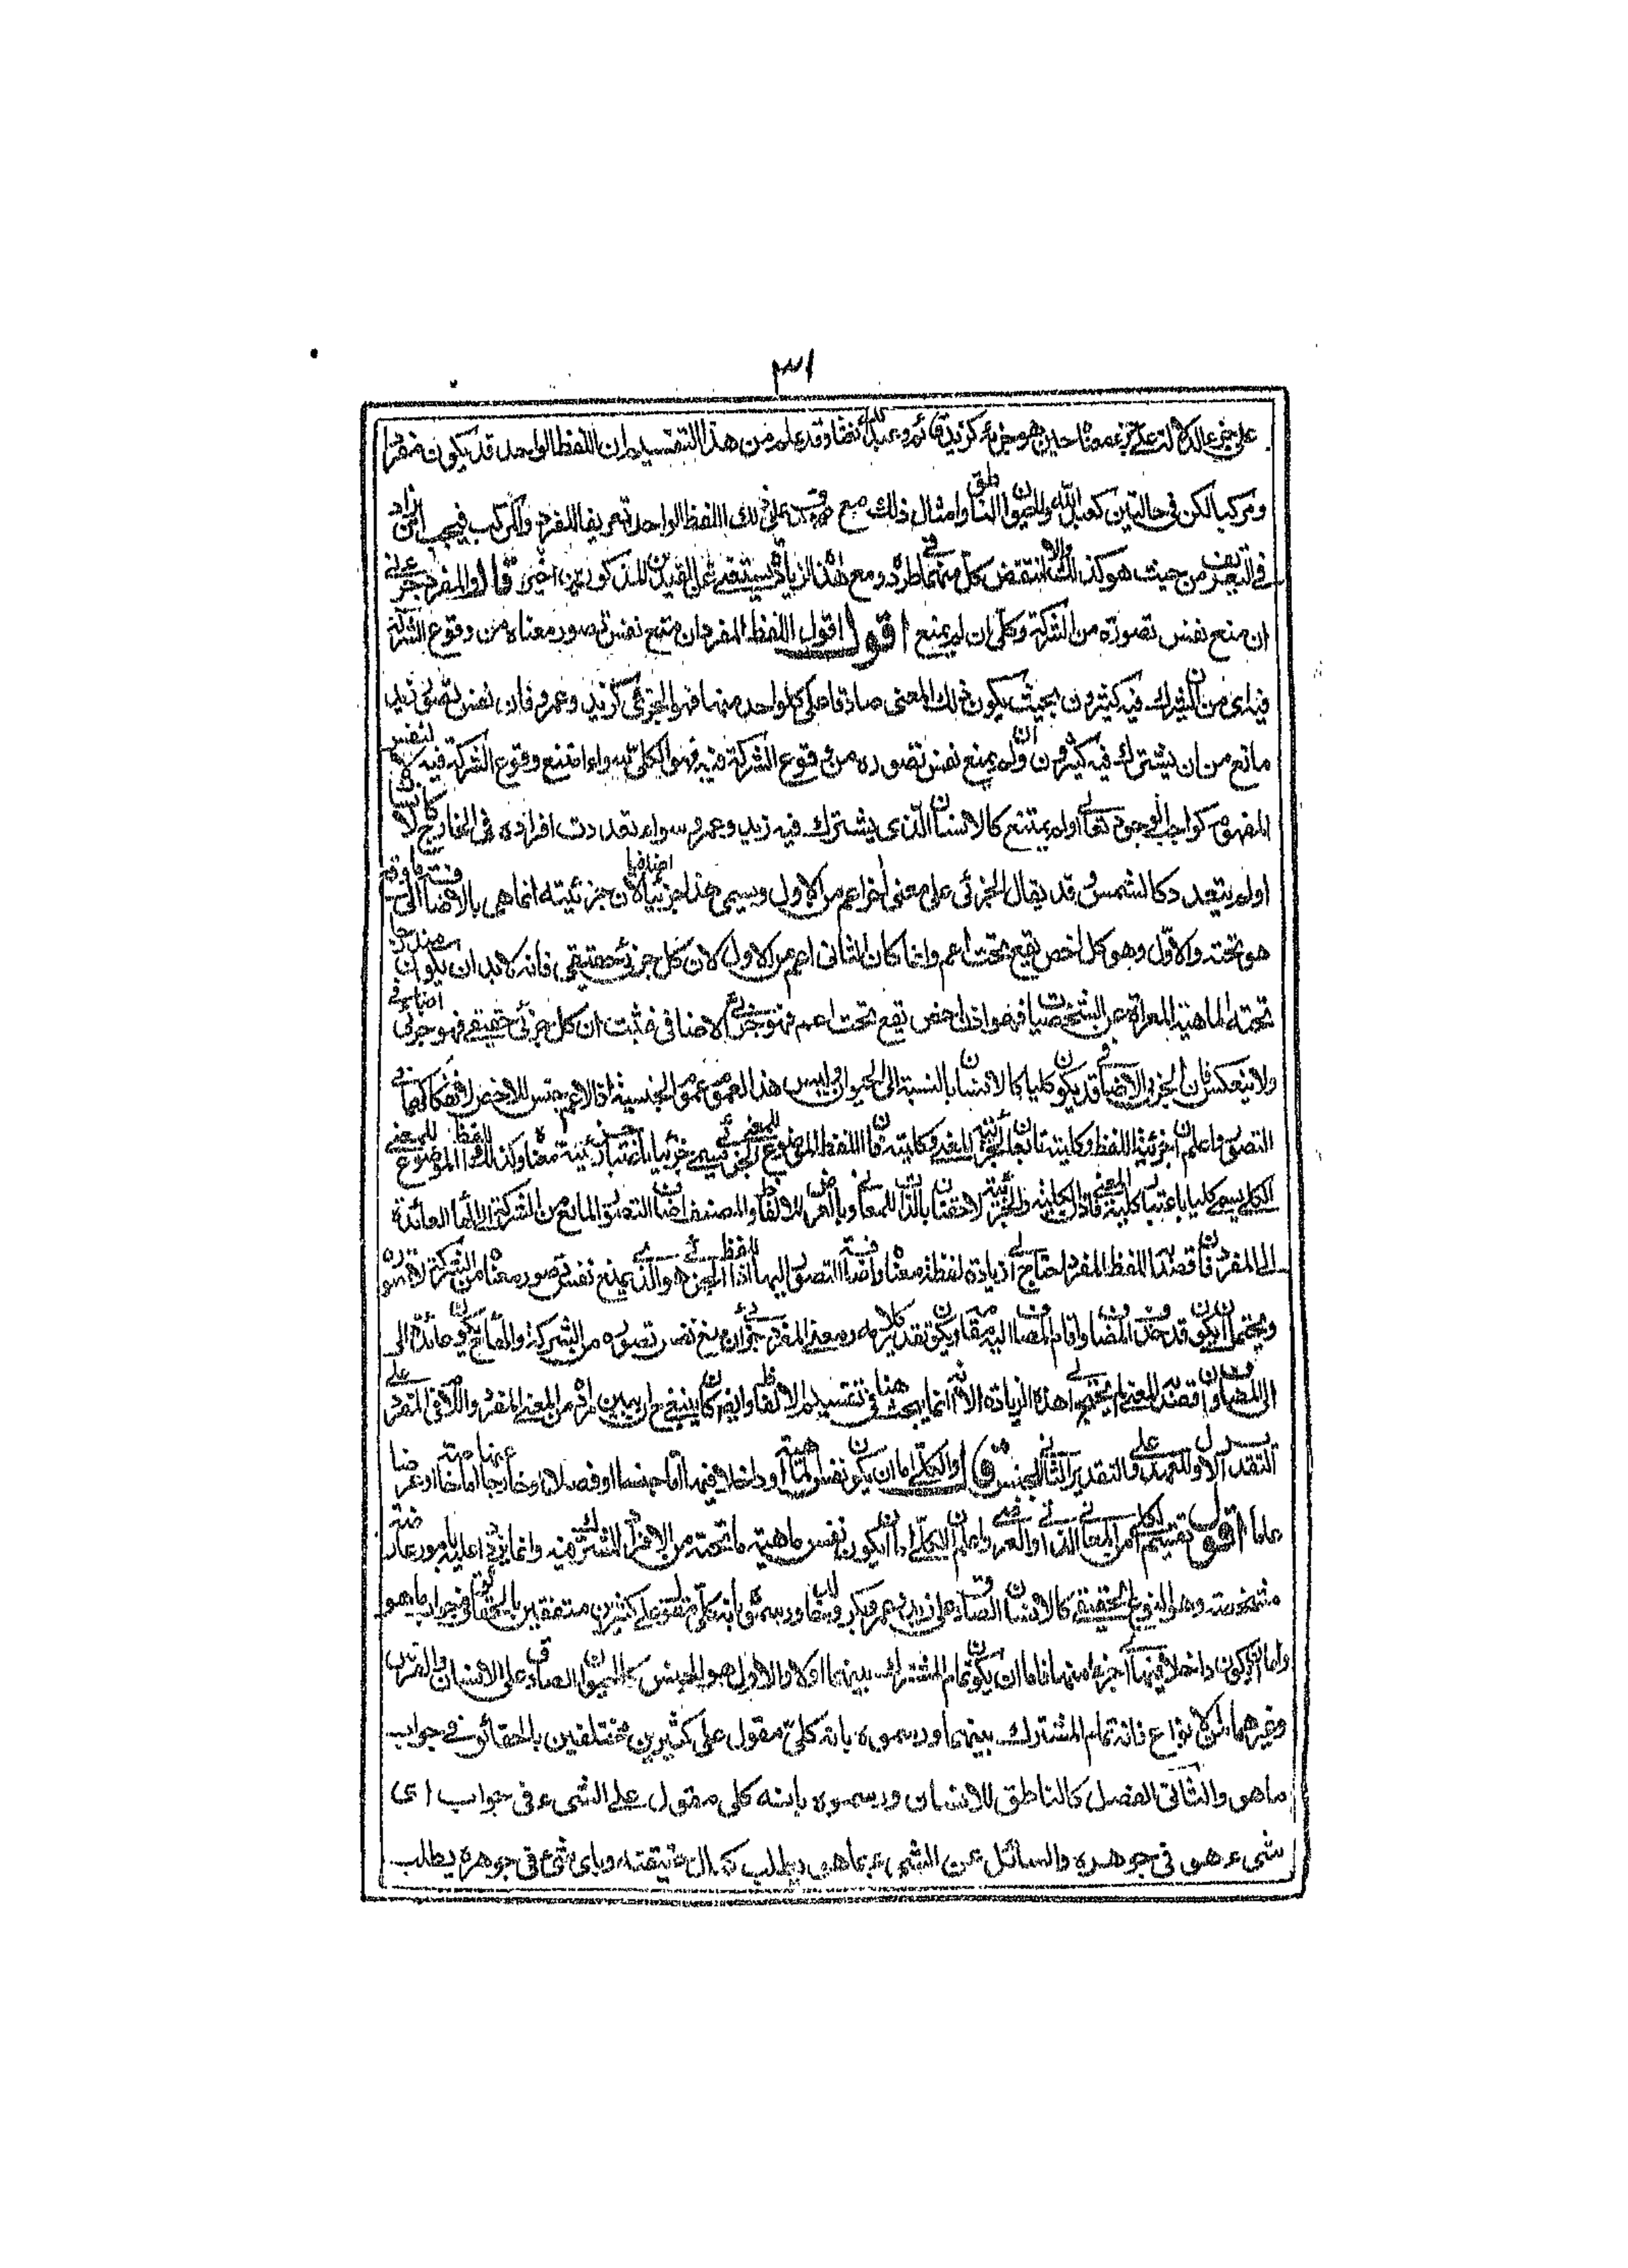 ٣١
وقد علم من هذا التقسيم ان اللفظ الواحد قد يكون مفردا
ومركبا لكن فى حالتين كعبد الله والحيوان الناطق وامثال ذلك مع صدق على ذلك اللفظ الواحد تعريفا المفرد والمركب فيجب ان يزاد
فى التعريفين من حيث هو كذلك والا لانتقض كل منهما طردا ومع هذه الزيادة يستغنى عن القيدين المذكورين قال والمفرد جزئى
ان منع نفس تصوره من الشركة وكلى ان لم يمنع اقول اقول اللفظ المفرد ان منع نفس تصور معناه من وقوع الشركة
فيه اى من ان يشترك فيه كثيرون بحيث يكون ذلك المعنى صادقا على كل واحد منها فهو الجزئى كزيد وعمرو فان نفس تصور زيد
مانع من ان يشترك فيه كثيرون وان لم يمنع نفس تصوره من وقوع الشركة فيه فهو الكلى سواء امتنع وقوع الشركة فيه لا لنفس
المفهوم كواجب الوجود تعالى او لم يمتنع كالانسان الذى يشترك فيه زيد وعمرو سواء تعددت افراده فى الخارج كالانسان
او لم يتعدد كالشمس وقد يقال الجزئى على معنى اخر اعم من الاول ويسمى هذا جزئيا اضافيا لان جزئيته انما هى بالاضافة الى ما فوقه
هو تحته والاول وهو كل اخص يقع تحت اعم وانما كان الثانى اعم من الاول لان كل جزئى حقيقى فانه لا بد ان يكون مندرجا
تحت الماهية المعراة عن المشخصات فهو اذن اخص يقع تحت اعم فهو جزئى اضافى فثبت ان كل جزئى حقيقى فهو جزئى اضافى
ولا ينعكس فان الجزئى الاضافى قد يكون كليا كالانسان بالنسبة الى الحيوان وليس هذا العموم عموم الجنسية اذ الاعم جنس للاخص لانفكاكهما فى
التصور واعلم ان جزئية اللفظ وكليته تابعان لجزئية المعنى وكليته فان اللفظ الموضوع للمعنى الجزئى يسمى جزئيا باعتبار جزئية معناه وكذلك اللفظ الموضوع للمعنى
الكلى يسمى كليا باعتبار كلية المعنى فاذا الكلية والجزئية لاحقتان بالذات للمعانى وبالعرض للالفاظ والمصنف اضاف التصور المانع من الشركة الى الهاء العائدة
الى المفرد فان قصد اللفظ المفرد احتاج الى زيادة لفظة معناه واضافة التصور اليها اذ اللفظ الجزئى هو الذى يمنع نفس تصور معناه من الشركة لا تصوره
ويحتمل ان يكون قد حذف المضاف واقام المضاف اليه مقامه ويكون تقدير كلامه ومعنى المفرد جزئى ان منع نفس تصوره من الشركة والهاء يكون عائدة الى
المضاف وان قصد المعنى لم يحتج الى هذه الزيادة الا انه انما يبحث هنا فى تقسيم الالفاظ وايضا كان ينبغى ح ان يبين المراد من المعنى المفرد واللام فى المفرد على
التقدير الاول للعهد وعلى التقدير الثانى للجنس والكلى اما ان يكون نفس الماهية او داخلا فيها اما جنسا او فصلا او خارجا عنها اما خاصة او عرضا
عاما اقول واعلم ان الكلى اما ان يكون نفس ماهية ما تحته من الافراد المشترك فيه وانما يزيد عليه بامور عارضة
مشخصة وهو النوع الحقيقى كالانسان الصادق على زيد وعمرو وبكر وخالد ورسموه بانه كلى مقول على كثيرين متفقين بالحقائق فى جواب ما هو
واما ان يكون داخلا فيها اى جزءا منها فاما ان يكون تمام المشترك بينهما اولا والاول هو الجنس كالحيوان الصادق على الانسان والفرس
وغيرهما من الانواع فانه تمام المشترك بينهما ورسموه بانه كلى مقول على كثيرين مختلفين بالحقائق فى جواب
ما هو والثانى الفصل كالناطق للانسان ورسموه بانه كلى مقول على الشىء فى جواب اى
شىء هو فى جوهره والسائل عن الشىء بما هو يطلب كمال حقيقته وباى شىء فى جوهره يطلب